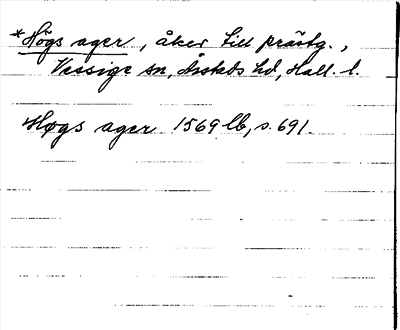 *Högs ager, åker till prästg.,
Vessige sn, Årstads hd, Hall. l.
Høgs ager 1569 lb, s. 691.